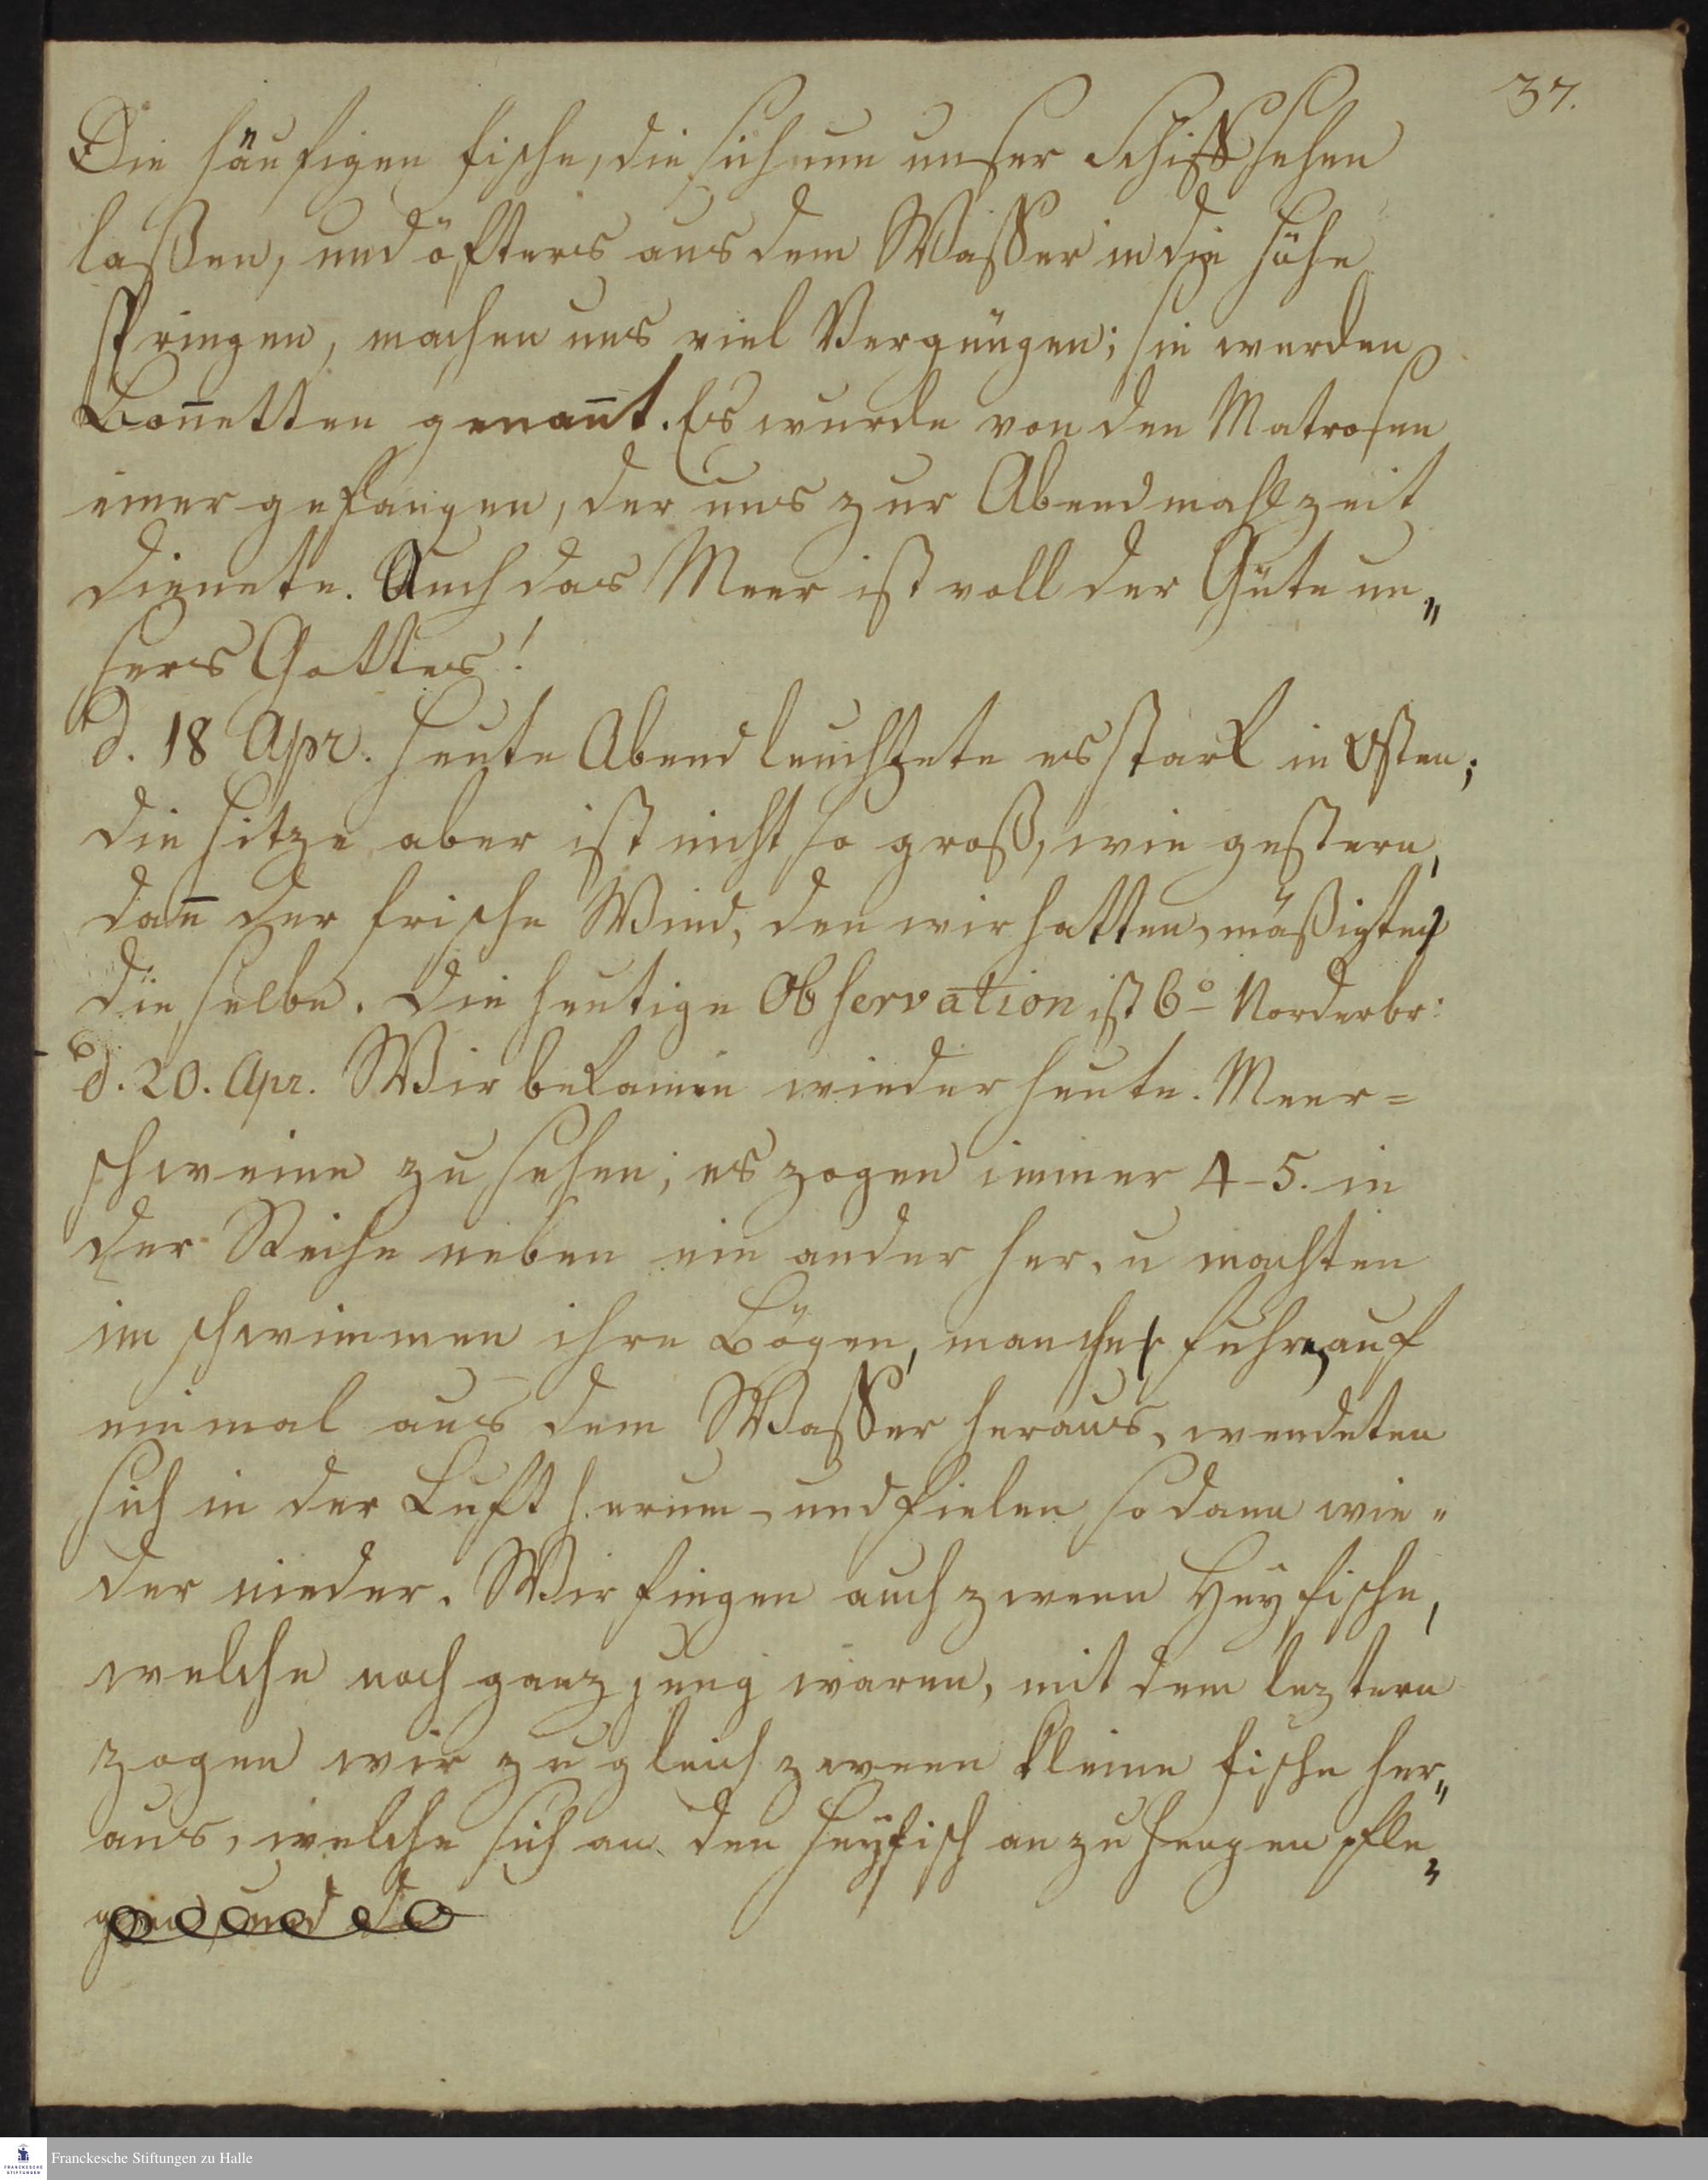 37.
Die häufigen fische, die sich um unser Schiff sehen
laßen, und öfters aus dem Waßer in die Höhe
springen, machen uns viel Vergnügen; sie werden
Bon̄etten genan̄t. Es wurde von den Matrosen
einer gefangen, der uns zur Abendmahlzeit
dienete. Auch das Meer ist voll der Güte un„
sers Gottes!
d. 18 Apr. Heute Abend leuchtete es stark in Osten;
die Hitze aber ist nicht so groß, wie gestern,
dan̄ der frische Wind, den wir hatten, mäßigte
die selbe. Die heutige Observation ist 6° Norderbr:
d. 20. Apr. Wir bekamen wieder heute. Meer=
schweine zu sehen; es zogen immer 4-5. in
der Reihe neben ein ander her, u machten
im schwimmen ihre Bögen, manche fuhren auf
einmal aus dem Waßer heraus, wendeten
sich in der Luft herum, und fielen so dann wie„
der nieder. Wir fingen auch zween Heyfische,
welche noch ganz jung waren, mit dem leztern
zogen wir zugleich zween kleine fische her„
aus, welche sich an den Heyfisch anzuhengen pfle„
gen, und
Franckesche Stiftungen zu Halle
FRANCKESCHE
STIFTUNGEN